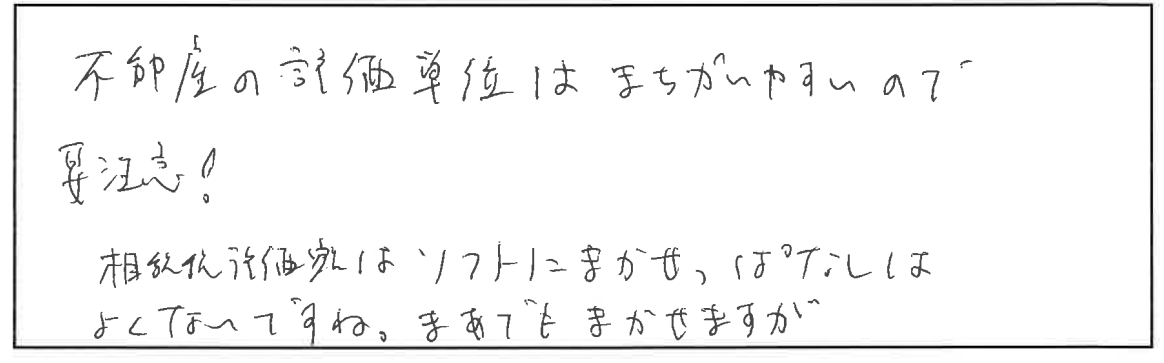 不動産の評価単位はまちがいやすいので
要注意!
相続税評価額はソフトにまかせっぱなしは
よくないですね。まあでもまかせますが